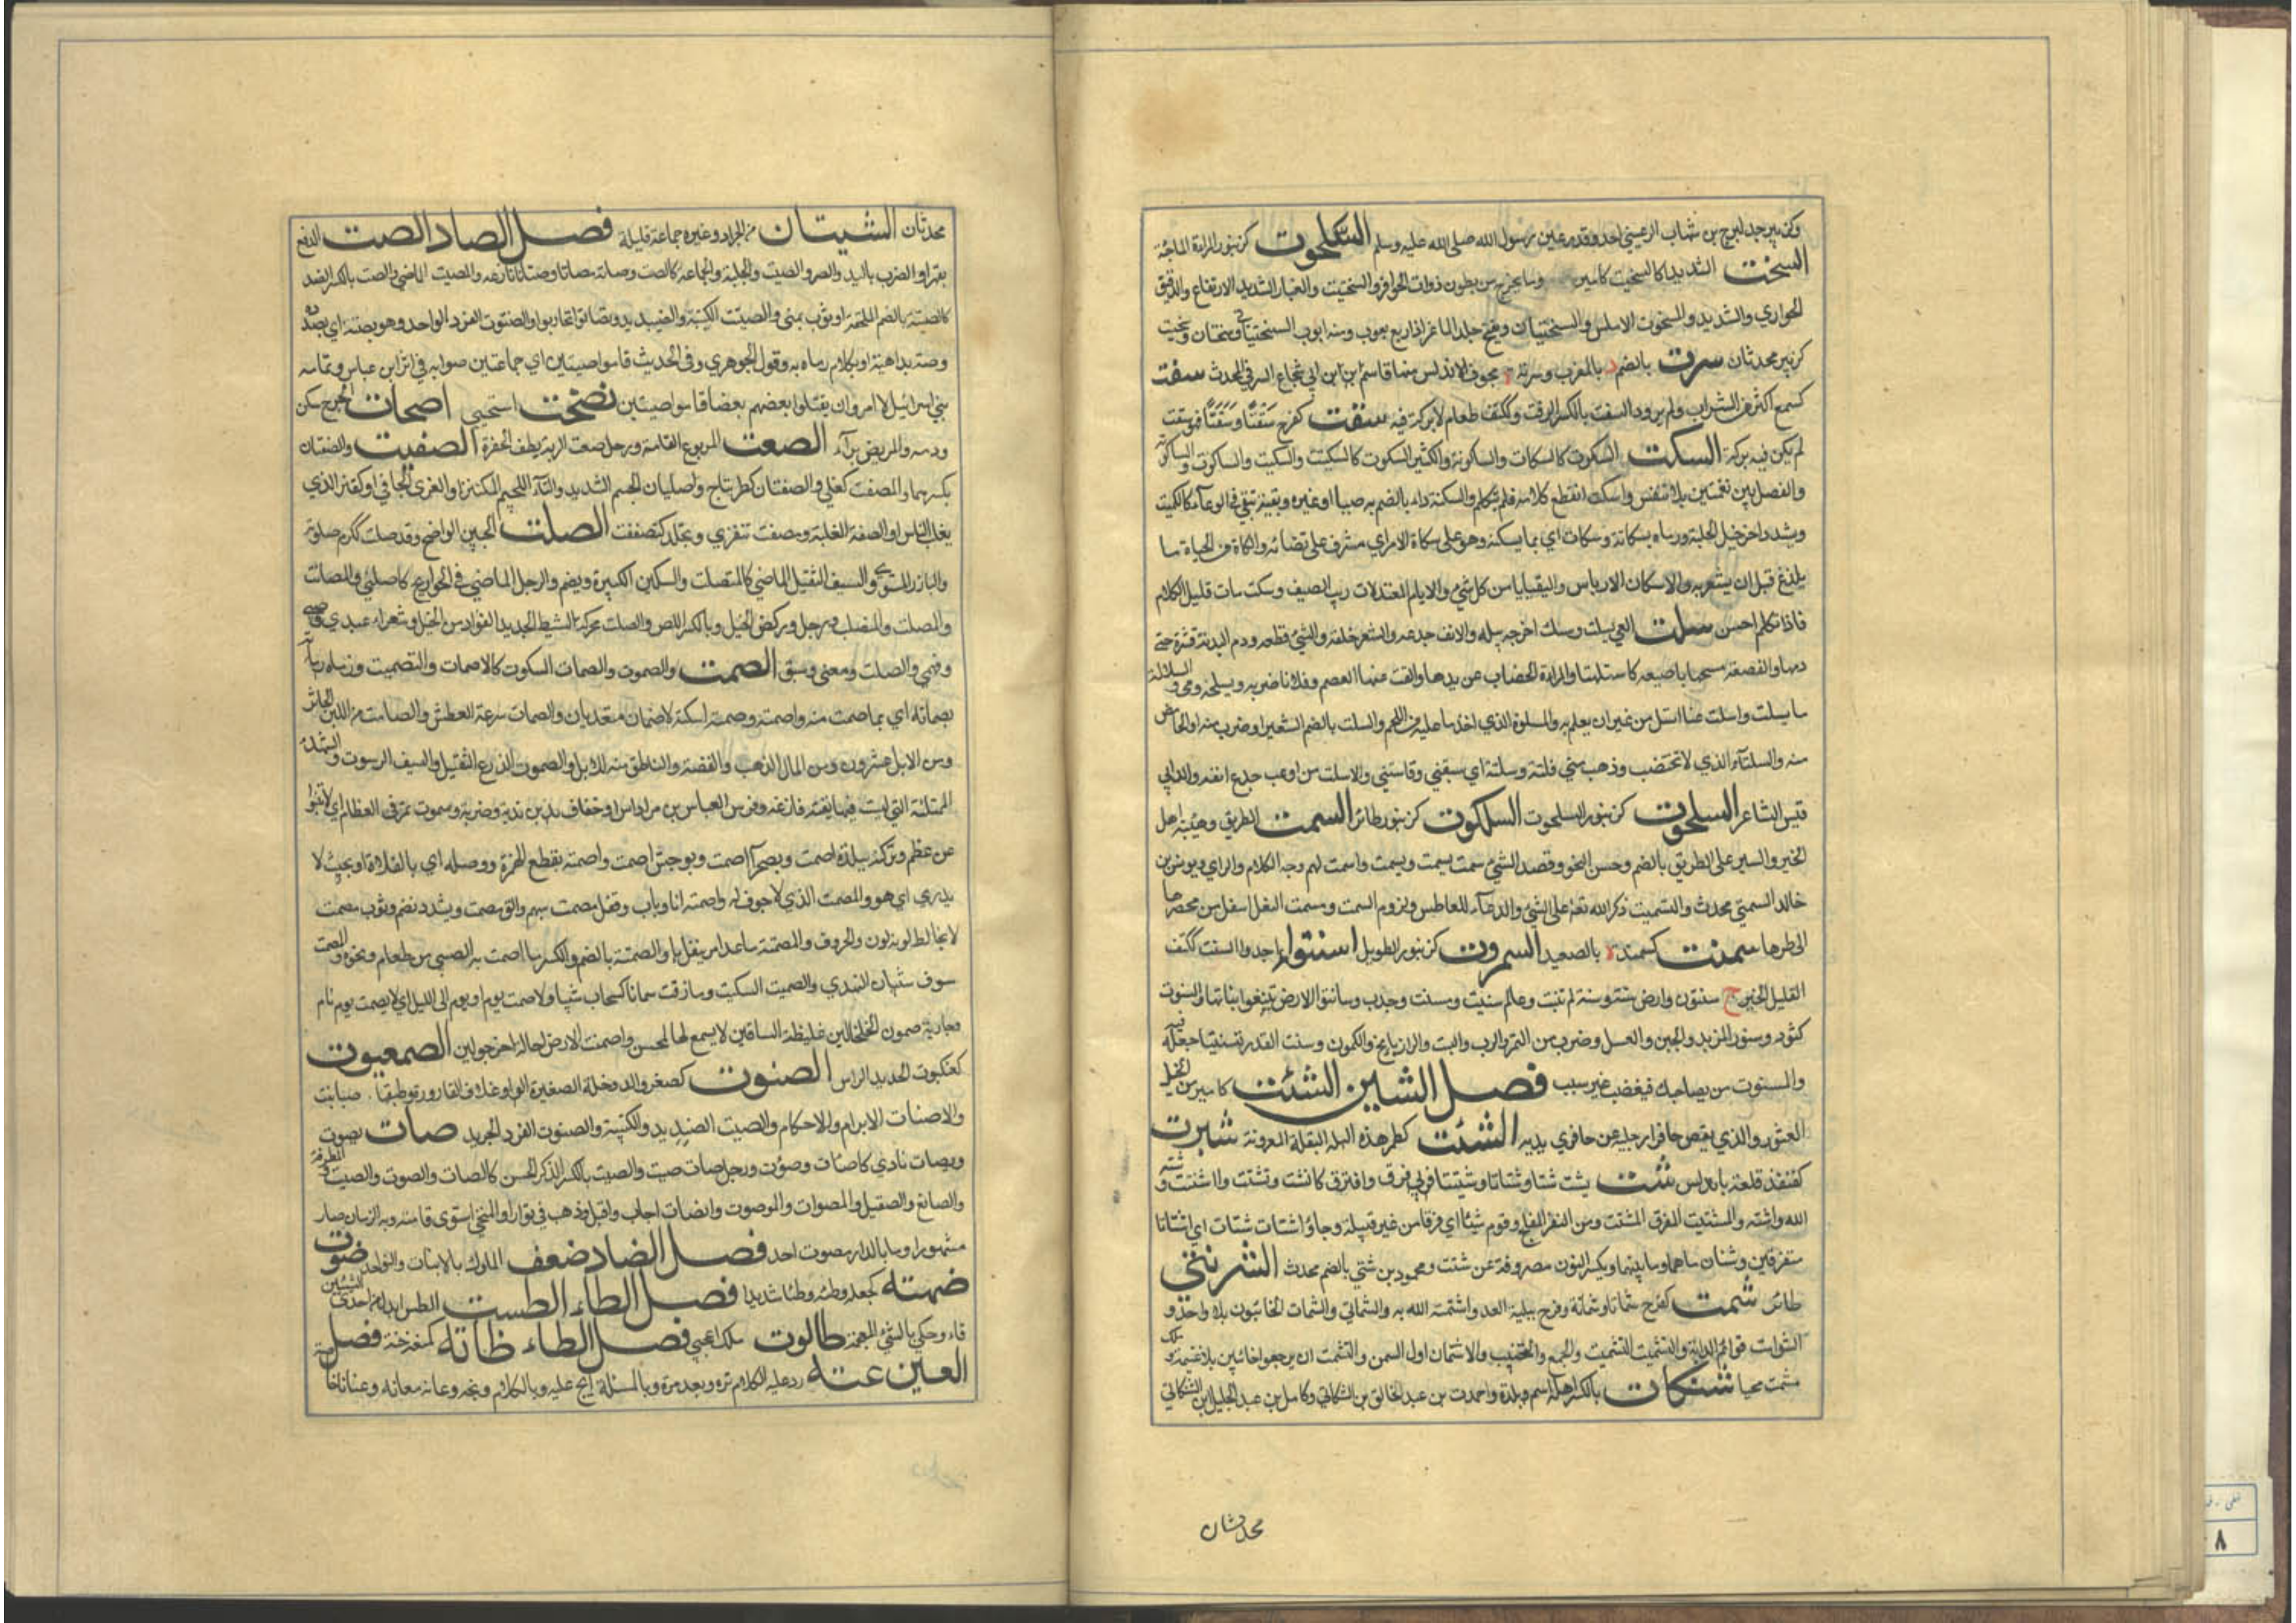 وكزبير جد لبرح بن شهاب الرعيني احد وفد رعين رسول الله صلى الله عليه وسلم السلحوت كزنبور المراة الماجنة
السخت الشديد كالسخيت كامير وما يخرج من بطون ذوات الحوافر والسختيت والغبار الشديد الارتفاع والدقيق
الحواري والشديد والسخوت الاملس والسختيان ويفتح جلد الماعز اذا دبغ معرب ومنه ايوب السختياني وسختان وسخيت
كزبير محدثان سرت بالضم د بالمغرب وسرتة ة بجوف الاندلس منها قاسم بن ابي شجاع السرتي المحدث سفت
كسمع اكثر من الشراب ولم يرو والسفت بالكسر الزفت وككتف طعام لا بركة فيه سقت كفرح سقتا وسقتا فهو سقت
لم يكن فيه بركة السكت السكوت كالسكات والساكوتة والكثير السكوت كالسكيت والسكيت والساكوت والساكوتة
والفصل بين نغمتين بلا تنفس واسكت انقطع كلامه فلم يتكلم والسكتة داء بالضم به صبيا او غيره وبقية تبقى في الوعاء كالكميت
ويشدد اخر خيل الحلبة ورماه بسكاتة وسكات اي بما يسكته وهو على سكات الامر اي مشرف على قضائه من الحياة ما
يلدغ قبل ان يشعر به والاسكات الاوباش والبقايا من كل شيء والايام المعتدلات الصيف وسكت مات قليل الكلام
فاذا تكلم احسن سلت المعى يسلت وسلت اخرجه بيده والانف جدعه والشعر حلقه والشيء قطعه ودم البدنة قشره حتى
دمها والقصعة مسحها باصبعه كاستلتها والمراة الخضاب عن يدها والقت عنها العصم وفلانا ضربه وبسلحه رمى والسلاتة
ما يسلت وانسلت عنا انسل من غير ان يعلم به والمسلوتة الذي اخذ ما عليه من اللحم والسلت بالضم الشعير او ضرب منه او الحامض
منه والسلتاء الذي لا تختضب وذهب مني فلتة وسلتة اي سبقني وفاتني والاسلت من اوعب جدع انفه والد ابي
قيس الشاعر السلحوت كزنبور السلحوت السلكوت كزنبور طائر السمت الطريق وهيئة اهل
الخير والسير على الطريق بالضم وحسن النحو وقصد الشيء سمت يسمت ويسمت وسمت لهم وجه الكلام والراي ويونس بن
خالد السمتي محدث والتسميت ذكر الله تعالى على الشيء والدعاء للعاطس ولزوم السمت ومسمت النعل اسفل من مخصرها
الى طرفها سمنت كسمند ة بالصعيد السمروت كزنبور الطويل اسنتوا اجدبوا السنت ككتف
القليل الخير ج سنتون وارض سنتة وسنة لم تنبت وعام سنيت ومسنت وجدب وسانتوا الارض تتبعوا نباتها والسنوت
كتنور وسنور الزبد والجبن والعسل وضرب من التمر والرب والشبت والرازيانج والكمون وسنت القدر تسنيتا جعله فيه
والمسنوت من يصاحبك فيغضب من غير سبب فصل الشين الشئت كامير من الخيل
العثور والذي يقصر حافرا رجليه عن حافري يديه الشئت كطمر هذه البقلة المعروفة شبرت
كقنفذ قلعة باندلس شت يشت شتا وشتاتا وشتيتا فرق وافترق كانشت وتشتت واشتت وشته
الله واشته والشتيت المفرق المشتت ومن الثغر المفلج وقوم شتى اي فرقا من غير قبيلة وجاؤا شتات شتات اي اشتاتا
متفرقين وشتان ما هما وما بينهما ويكسر النون مصروفة عن شتت ومحمود بن شتى بالضم محدث الشرنتي
طائر شمت كفرح شماتا وشماتة فرح ببلية العدو واشمته الله به والشماتى والشمات الخائبون بلا واحد و
الشوامت قوائم الدابة والتشميت التسميت والجمع والتخييب والاشتمات اول السمن والتشمت ان يرجعوا خائبين بلا غنيمة وملك
مشمت محيا شتكات بالكسر اسم وبلدة واحمد بن عبد الخالق بن الشكاتي وكامل بن عبد الجليل ابن الشكاتي
محدثان
محدثان الشيتان من الجراد وغيره جماعة قليلة فصل الصاد الصت الدفع
بقهر او الضرب باليد والصر والصيت والجلبة والجماعة كالصت وصاته مصاتة وصتاتا نازعه والصيت الماضي والصت بالكسر الضد
كالصتية بالضم الملحفة او ثوب يمني والصتيت الكتيبة والصنديد وتصاتوا تحاربوا والصنتوت الفرد الواحد وهو بصتته اي بصدده
وصته بداهية او بكلام رماه به وقول الجوهري وفي الحديث قاموا صيتين اي جماعتين صوابه في اثر ابن عباس وتمامه
بني اسرائيل لما امروا ان يقتلوا بعضهم بعضا قاموا صيتين نصخت استحيى اصحات الجرح سكن
ورمه والمريض برأ الصعت المربوع القامة ورجل صعت الربة لطيف الحفرة الصفتيت والصفتان
بكسرهما والمصفت كعتلي والصفتان كطرماح وصليان الجسيم الشديد والتاء اللحيم المكتنز والقوي الجافي او كفلز الذي
يغلب الناس والصفتة الغلبة وصفت تتفزي وتجلد كتصفت الصلت الجبين الواضح وقد صلت ككرم صلوتة
والبارز المستوي والسيف الثقيل الماضي كالمنصلت والسكين الكبيرة ويضم والرجل الماضي في الحوائج كاصلتي والمصلات
والمصلت والمنصلت ورجل وركض الخيل وبالكسر اللص والصلت محركة النشيط الحديد الفؤاد من الخيل وشعراء عبدي وضبي
وفهمي والصلت ومعنى وسبق الصمت والصموت والصمات السكوت كالاصمات والتصميت ورماه
بصماته اي بما صمت منه واصمته وصمته اسكته لازمان متعديان والصمات سرعة العطش والصامت من اللبن الخاثر
ومن الابل عشرون ومن المال الذهب والفضة والناطق منه الابل والصموت الدرع الثقيل والسيف الرسوب والشهدة
الممتلئة التي ليست فيها ثقبة فارغة وفرس العباس بن مرداس او خفاف بن ندبة وضربة صموت تمر في العظام اي لا تنبو
عن عظم وتركته ببلدة اصمت وبصحراء اصمت وبوحش اصمت واصمتة بقطع الهمزة ووصله اي بالفلاة او بحيث لا
يدري اي هو والمصمت الذي لا جوف له واصمته انا وباب وقفل مصمت مبهم والف مصمت ويشدد نضم وثوب مصمت
لا يخالط لونه لون والحروف المصمتة ما عدا مر بنفل والصمتة بالضم والكسر ما اصمت به الصبي من طعام ونحوه والصمت
سوف شتيان الهندي والصميت السكيت وما ذقت صماتا كسحاب شيا ولا صمت يوم او يوم الى الليل اي لا يصمت يوم تام
وجارية صموت الخلخالين غليظة الساقين لا يسمع لهما حس واصمتت الارض احالت اخر حولين الصمعيوت
كعنكبوت الحديد الراس الصنوت كصغر والدوخلة الصغيرة او غلاف القارورة وطبقها صبانت
والاصنات الابرام والاحكام والصنيت الصنديد والكتيبة والصنتوت الفرد الحريد صات يصوت
ويصات نادى كاصات وصوت ورجل صات صيت والصيت بالكسر الذكر الحسن كالصات والصوت والصيت المطرقة
والصائغ والصقيل والمصوات والموصوت وانصات اجاب واقبل وذهب في توار والمنحني استوى قامته وبه الزمان صار
مشهورا وما بالدار مصوات احد فصل الضاد ضعف اللوك بالاسنان والنواجذ ضوت
ضهته كجعله وطئه وطئا شديدا فصل الطاء الطست الطس ابدل من احدى السينين
تاء وحكي بالشين المعجمة طالوت ملك اعجمي فصل الظاء ظاته كمنعه خنقه فصل
العين عته رد عليه الكلام مرة وبعد مرة وبالمسئلة الح عليه وبالكلام وبخه وعاته معاتة وعتاتا خاصمه